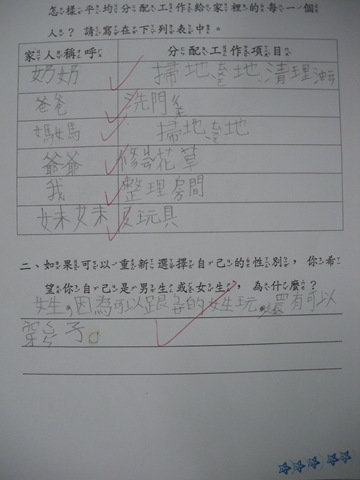 怎樣平均分配工作給家裡的每一個
人？請寫在下列表中。
家人稱呼 分配工作項目
奶奶 掃地、地、清理油
爸爸 洗門
媽媽 掃地、地
爺爺 修花草
我 整理房間
妹妹 玩具
二、如果可以重新選擇自己的性別，你希
望你自己是男生或女生，為什麼？
女生，因為可以跟的女生玩，還有可以
穿子。